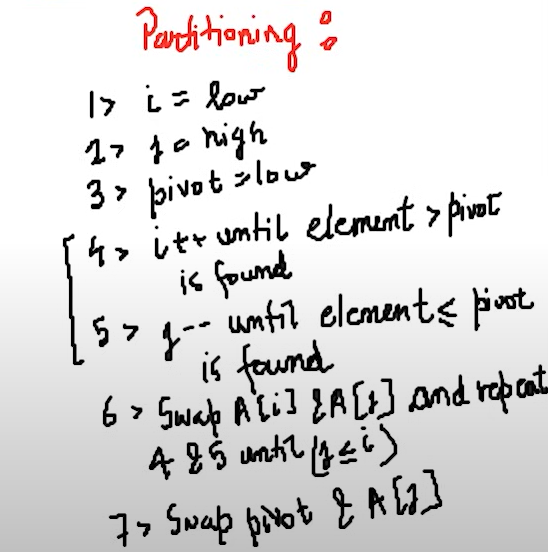 Partitioning :
1> i = low
2> j = high
3> pivot = low
4> i++ until element > pivot
is found
5> j-- until element ≤ pivot
is found
6> Swap A[i] & A[j] and repeat
4 & 5 until (j ≤ i)
7> Swap pivot & A[j]